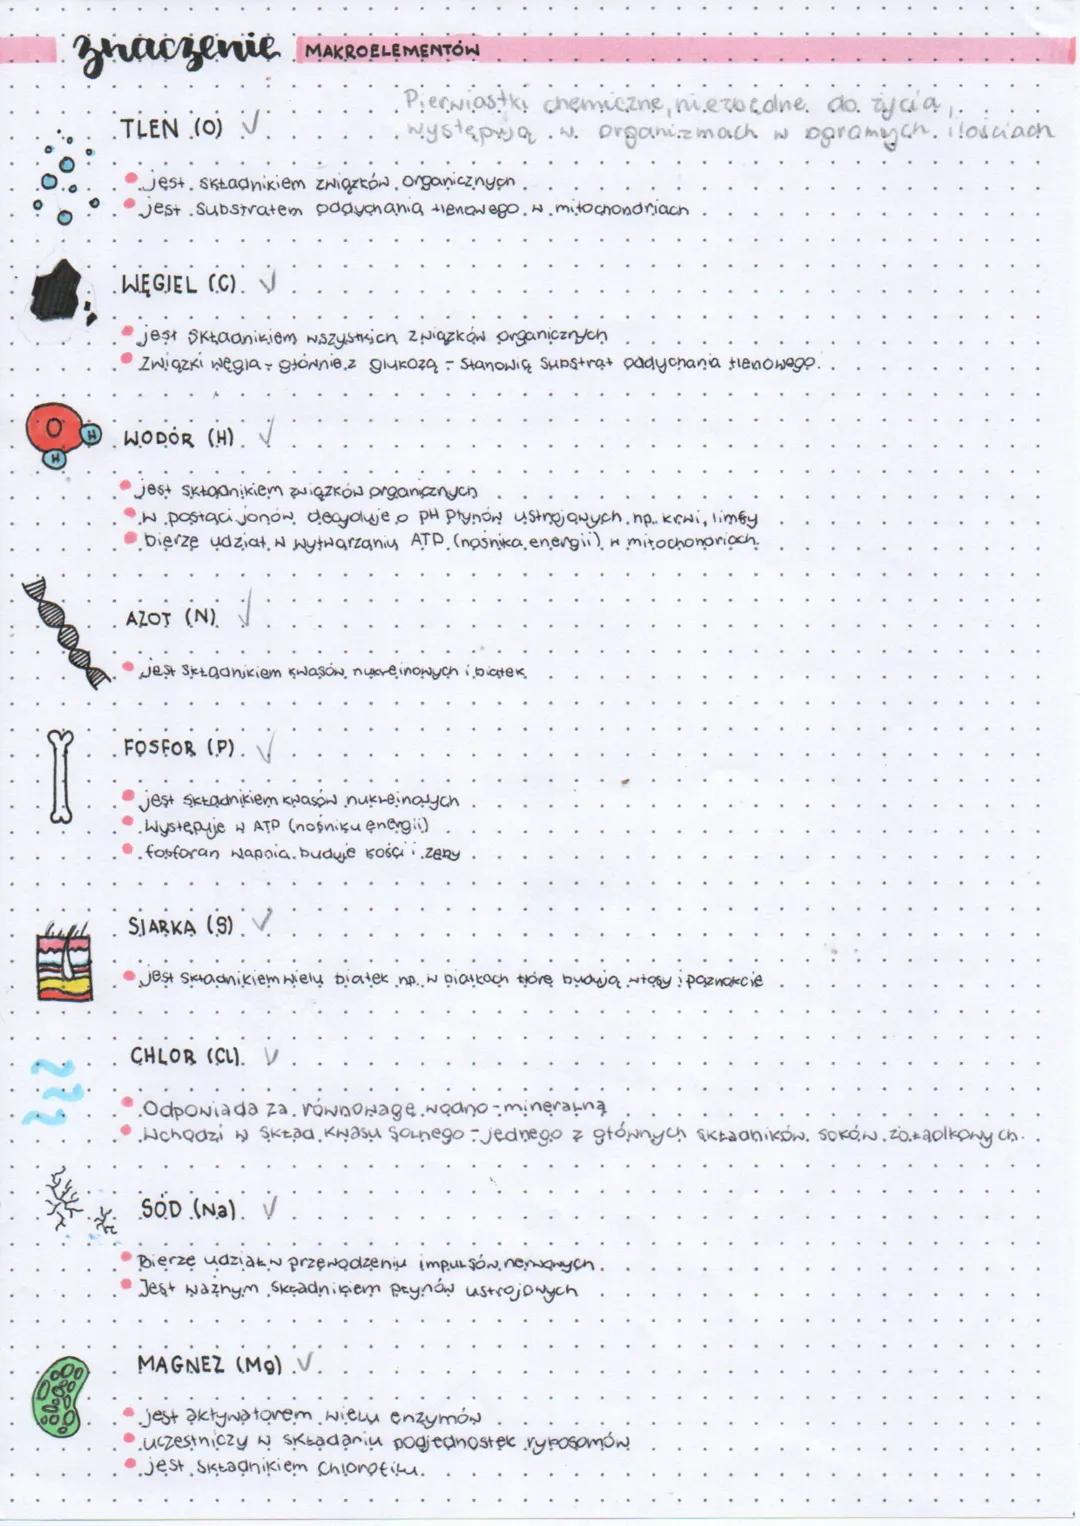 znaczenie MAKROELEMENTÓW
Pierwiastki chemiczne, niezbędne do życia,
występują w organizmach w ogromnych ilościach
TLEN (O) ✓
• jest składnikiem związków organicznych
• jest substratem oddychania tlenowego w mitochondriach
WĘGIEL (C) ✓
• jest składnikiem wszystkich związków organicznych
• Związki węgla - głównie z glukozą - stanowią substrat oddychania tlenowego.
O H H
WODÓR (H) ✓
• jest składnikiem związków organicznych
• w postaci jonów decyduje o pH płynów ustrojowych np. krwi, limfy
• bierze udział w wytwarzaniu ATP (nośnika energii) w mitochondriach.
AZOT (N) ✓
• jest składnikiem kwasów nukleinowych i białek
FOSFOR (P) ✓
• jest składnikiem kwasów nukleinowych
• Występuje w ATP (nośniku energii)
• fosforan wapnia buduje kości i zęby
SIARKA (S) ✓
• jest składnikiem wielu białek np. w białkach które budują włosy i paznokcie
CHLOR (CL) ✓
• Odpowiada za równowagę wodno-mineralną
• Wchodzi w skład kwasu solnego - jednego z głównych składników soków żołądkowych.
SÓD (Na) ✓
• Bierze udział w przewodzeniu impulsów nerwowych.
• Jest ważnym składnikiem płynów ustrojowych
MAGNEZ (Mg) ✓
• jest aktywatorem wielu enzymów
• uczestniczy w składaniu podjednostek rybosomów
• jest składnikiem chlorofilu.